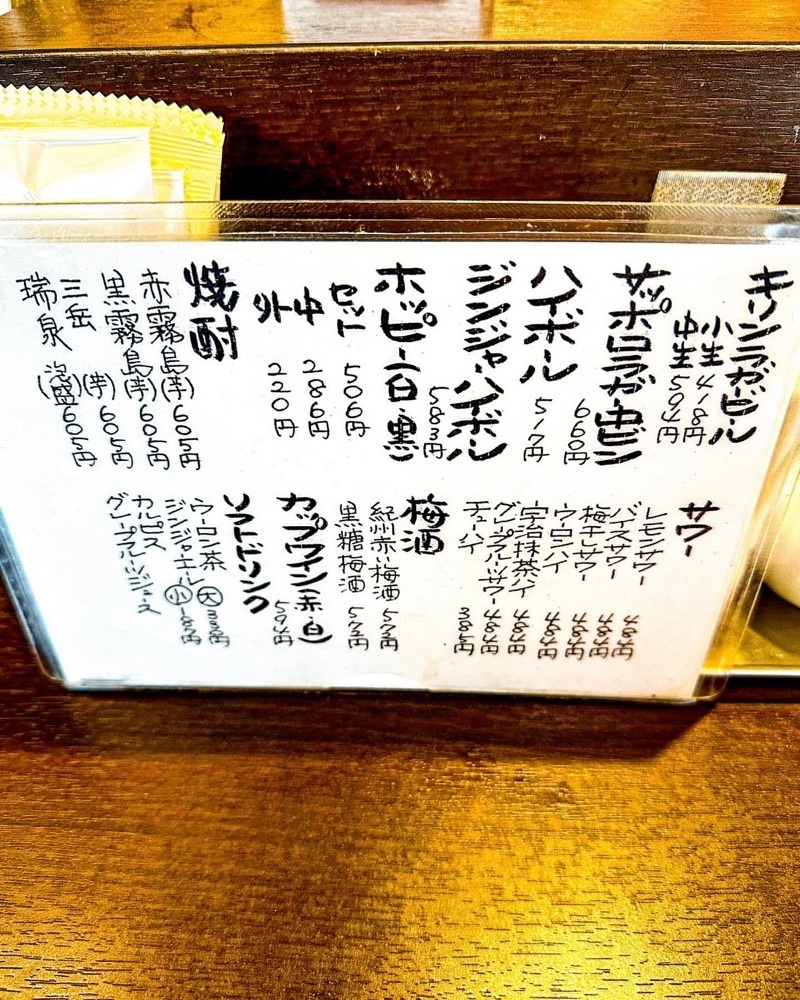 キリンラガービール
小生 418円
中生 594円
サッポロラガー中ビン
660円
ハイボール
517円
ジンジャーハイボール
583円
ホッピー(白・黒)
セット 506円
中 286円
外 220円
焼酎
赤霧島(芋) 605円
黒霧島(芋) 605円
三岳(芋) 605円
瑞泉(泡盛) 605円
サワー
レモンサワー 484円
バイスサワー 484円
梅干サワー 484円
ウーロンハイ 484円
宇治抹茶ハイ 484円
グレープフルーツサワー 484円
チューハイ 385円
梅酒
紀州赤い梅酒 572円
黒糖梅酒 572円
カップワイン(赤・白)
594円
ソフトドリンク
ウーロン茶 大 338円
ジンジャエール 小 187円
カルピス
グレープフルーツジュース